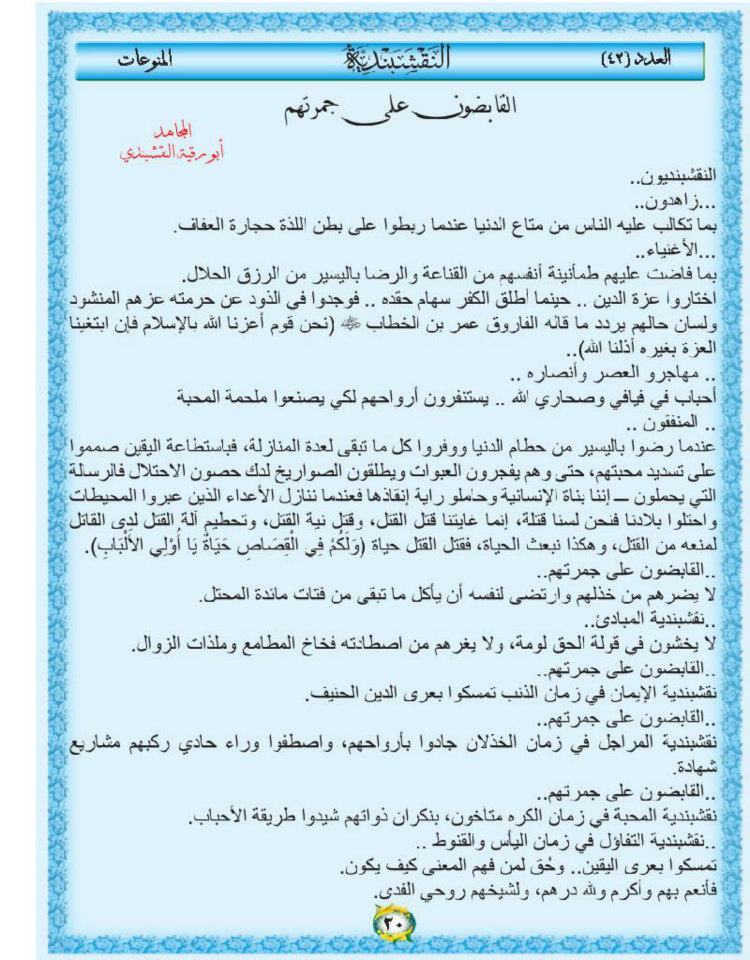 العدد (٤٢)
النقشبندية
المنوعات
القابضون على جمرتهم
المجاهد
أبو رقية النقشبندي
النقشبنديون..
...زاهدون..
بما تكالب عليه الناس من متاع الدنيا عندما ربطوا على بطن اللذة حجارة العفاف.
...الأغنياء..
بما فاضت عليهم طمأنينة أنفسهم من القناعة والرضا باليسير من الرزق الحلال.
اختاروا عزة الدين .. حينما أطلق الكفر سهام حقده .. فوجدوا في الذود عن حرمته عزهم المنشود
ولسان حالهم يردد ما قاله الفاروق عمر بن الخطاب (نحن قوم أعزنا الله بالإسلام فإن ابتغينا
العزة بغيره أذلنا الله)..
.. مهاجرو العصر وأنصاره ..
أحباب في فيافي وصحاري الله .. يستنفرون أرواحهم لكي يصنعوا ملحمة المحبة
.. المنفقون ..
عندما رضوا باليسير من حطام الدنيا ووفروا كل ما تبقى لعدة المنازلة، فباستطاعة اليقين صمموا
على تسديد محبتهم، حتى وهم يفجرون العبوات ويطلقون الصواريخ لدك حصون الاحتلال فالرسالة
التي يحملون ــ إننا بناة الإنسانية وحاملو راية إنقاذها فعندما ننازل الأعداء الذين عبروا المحيطات
واحتلوا بلادنا فنحن لسنا قتلة، إنما غايتنا قتل القتل، وقتل نية القتل، وتحطيم آلة القتل لدى القاتل
لمنعه من القتل، وهكذا نبعث الحياة، فقتل القتل حياة (وَلَكُمْ فِي الْقِصَاصِ حَيَاةٌ يَا أُوْلِي الأَلْبَابِ).
..القابضون على جمرتهم..
لا يضرهم من خذلهم وارتضى لنفسه أن يأكل ما تبقى من فتات مائدة المحتل.
..نقشبندية المبادئ..
لا يخشون في قولة الحق لومة، ولا يغرهم من اصطادته فخاخ المطامع وملذات الزوال.
..القابضون على جمرتهم..
نقشبندية الإيمان في زمان الذنب تمسكوا بعرى الدين الحنيف.
..القابضون على جمرتهم..
نقشبندية المراجل في زمان الخذلان جادوا بأرواحهم، واصطفوا وراء حادي ركبهم مشاريع
شهادة.
..القابضون على جمرتهم..
نقشبندية المحبة في زمان الكره متاخون، بنكران ذواتهم شيدوا طريقة الأحباب.
..نقشبندية التفاؤل في زمان اليأس والقنوط ..
تمسكوا بعرى اليقين.. وحُق لمن فهم المعنى كيف يكون.
فأنعم بهم وأكرم ولله درهم، ولشيخهم روحي الفدى.
٣٠